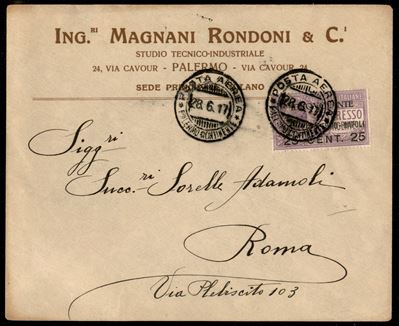 ING.RI MAGNANI RONDONI & C.I
STUDIO TECNICO-INDUSTRIALE
24, VIA CAVOUR - PALERMO - VIA CAVOUR, 24
SEDE LANO
POSTA AEREA
28.6.17
POSTA AEREA
28.6.17
25 CENT. 25
Sigg.ri
Succ.ri Sorelle Adamoli
Roma
Via Plebiscito 103